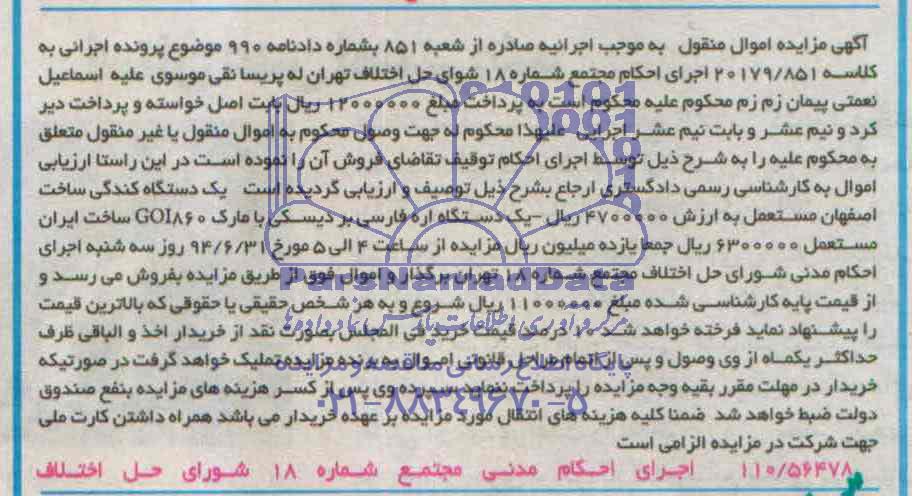 آگهی مزایده اموال منقول به موجب اجرائیه صادره از شعبه ۸۵۱ بشماره دادنامه ۹۹۰ موضوع پرونده اجرائی به
کلاسه ۲۰۱۷۹/۸۵۱ اجرای احکام مجتمع شماره ۱۸ شوای حل اختلاف تهران له پریسا نقی موسوی علیه اسماعیل
نعمتی پیمان زم زم محکوم علیه محکوم است به پرداخت مبلغ ۱۲۰۰۰۰۰۰ ریال بابت اصل خواسته و پرداخت دیر
کرد و نیم عشر و بابت نیم عشر اجرایی علیهذا محکوم له جهت وصول محکوم به اموال منقول یا غیر منقول متعلق
به محکوم علیه را به شرح ذیل توسط اجرای احکام توقیف تقاضای فروش آن را نموده است در این راستا ارزیابی
اموال به کارشناسی رسمی دادگستری ارجاع بشرح ذیل توصیف و ارزیابی گردیده است یک دستگاه کندگی ساخت
اصفهان مستعمل به ارزش ۴۷۰۰۰۰۰ ریال -یک دستگاه اره فارسی بر دیسکی با مارک GOI۸۶۰ ساخت ایران
مستعمل ۶۳۰۰۰۰۰ ریال جمعا یازده میلیون ریال مزایده از ساعت ۴ الی ۵ مورخ ۹۴/۶/۳۱ روز سه شنبه اجرای
احکام مدنی شورای حل اختلاف مجتمع شماره ۱۸ تهران برگذار و اموال فوق از طریق مزایده بفروش می رسد و
از قیمت پایه کارشناسی شده مبلغ ۱۱۰۰۰۰۰۰ ریال شروع و به هر شخص حقیقی یا حقوقی که بالاترین قیمت
را پیشنهاد نماید فرخته خواهد شد ۱۰ درصد قیمت خرید فی المجلس بصورت نقد از خریدار اخذ و الباقی ظرف
حداکثر یکماه از وی وصول و پس از اتمام مراحل قانونی اموال به برنده مزایده تملیک خواهد گرفت در صورتیکه
خریدار در مهلت مقرر بقیه وجه مزایده را پرداخت ننماید سپرده وی پس از کسر هزینه های مزایده بنفع صندوق
دولت ضبط خواهد شد ضمنا کلیه هزینه های انتقال مورد مزایده بر عهده خریدار می باشد همراه داشتن کارت ملی
جهت شرکت در مزایده الزامی است
۱۱۰/۵۶۴۷۸ اجرای احکام مدنی مجتمع شماره ۱۸ شورای حل اختلاف
ParsNamadData
مرکز فرآوری اطلاعات پارس نماد داده ها
پایگاه اطلاع رسانی مناقصه و مزایده
۰۲۱-۸۸۳۴۹۶۷۰-۵